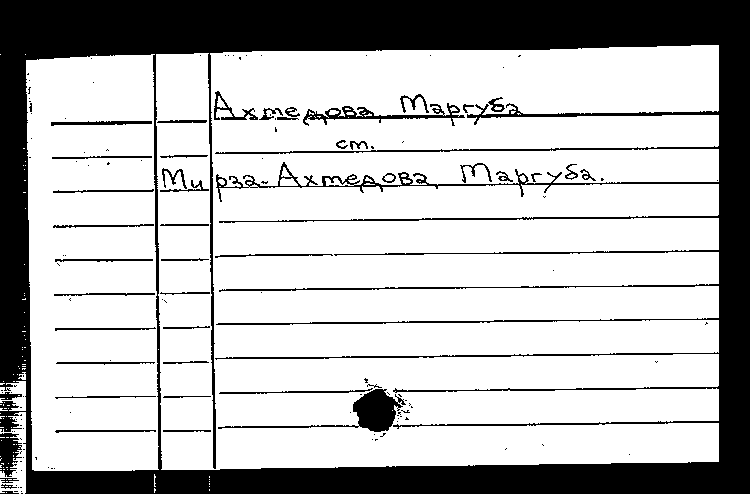 Ахмедова, Маргуба
ст.
Мирза-Ахмедова, Маргуба.